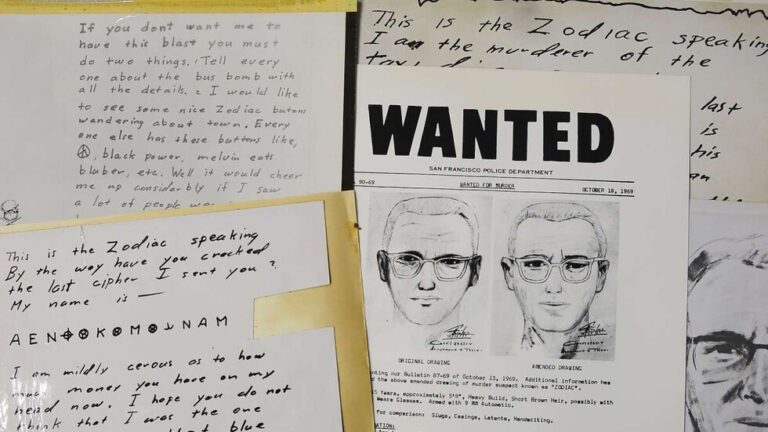 If you dont want me to
have this blast you must
do two things. Tell every
one about the bus bomb with
all the details. I would like
to see some nice Zodiac butons
wandering about town. Every
one else has these buttons like,
black power, melvin eats
bluber, etc. Well it would cheer
me up considerbly if I saw
a lot of people
This is the Zodiac speaking
By the way have you cracked
the last cipher I sent you?
My name is —
A E N ⌖ K M NAM
I am mildly cerous as to how
much money you have on my
head now. I hope you do not
think that I was the one
that blue
This is the Zodiac speaking
I am the murderer of the
last
is
his
an
WANTED
SAN FRANCISCO POLICE DEPARTMENT
90-69 WANTED FOR MURDER OCTOBER 18, 1969
ORIGINAL DRAWING AMENDED DRAWING
our Bulletin 87-69 of October 13, 1969. Additional information has
the above amended drawing of murder suspect known as "ZODIAC".
Years, approximately 5'8", Heavy Build, Short Brown Hair, possibly with
Glasses. Armed with 9 MM Automatic.
for comparison: Slugs, Casings, Latents, Handwriting.